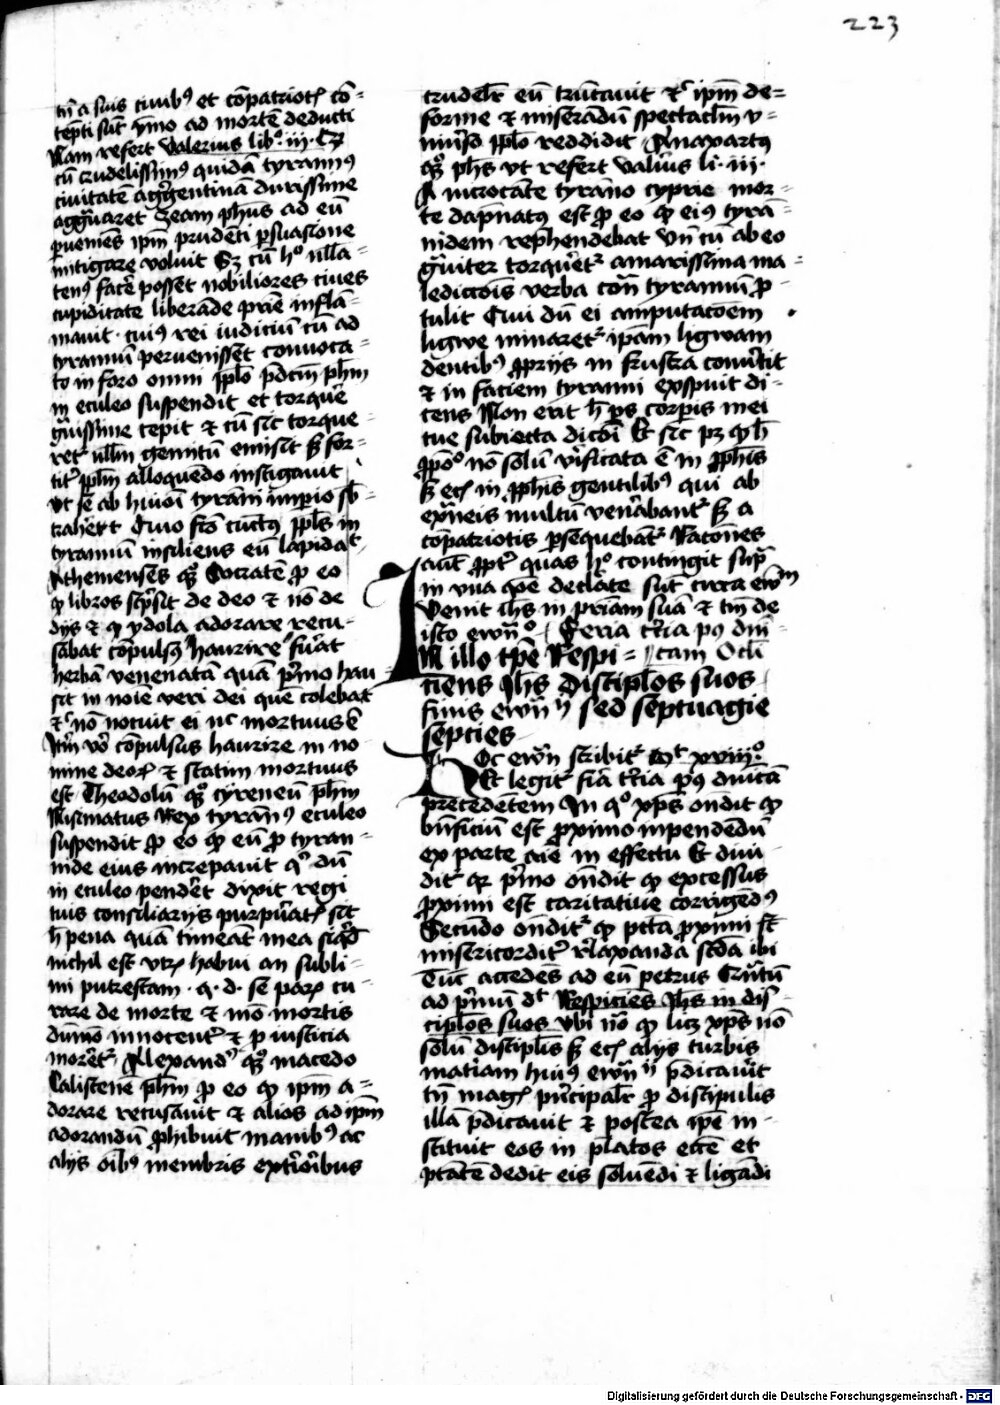 223
tn̄ a suis ciuibꝰ et cōpatriotꝭ cō-
tepti sūt ymo ad mortē deducti
Nam refert Valerius libꝰ iii Cꝫ
cū crudelissimꝰ quidā tyrannꝰ
ciuitatē agrgentinā durissime
aggͣuaret zeam ph̄us ad eū
pueniēs ip̄m prudēti psuasione
mitigare voluit Sꝫ cū hͦ nlla-
tenꝰ facͤe posset nobiliores ciues
cupiditate liberāde pr̄ie inflā-
mauit cuiꝰ rei iudiciū cū ad
tyrannū peruenisset conuoca-
to in foro omni pp̄lo p̄dcm̄ ph̄m
in eculeo suspendit et torquēͤ
gͣuissime cepit ⁊ cū sic torque-
retꝭ nllm̄ gemitū emisit sꝫ for-
titͤ pp̄lm alloquēdo instigauit
vt se ab huiōi tyrāni imperio sb-
trahēͤt Quo fcō cūctꝰ pp̄ls in
tyrannū insiliens eū lapidat
Athenienses qꝫͦ Socratē ꝓ eo
ꝙ libros scp̄sit de deo ⁊ nō de
dijs ⁊ ꝙ ydola adorare recu-
sabat cōpulsꝰ haurire fuͤat
herbā venenatā quā pͥmo hau
sit in noīe veri dei quē colebat
⁊ nō nocuit ei nc̄ mortuus ē
Itͤm vͦo cōpulsus haurire in no
mine deoꝝ ⁊ statim mortuus
est Theodolū qꝫͦ cyreneū ph̄m
Lisimatus Rex tyrannꝰ eculeo
suspendit ꝓ eo ꝙ eū ꝓ tyran-
nide eius increpauit qͥ dū
in eculeo pendeͤt dixit regi
tuis consiliarijs purpuͤatꝭ sit
h̄ pena quā timeāt mea siqͥd
nichil est vtꝝ humi an subli-
mi putrescam q. d. se paꝝ cu-
rare de morte ⁊ mō mortis
dūmō innocentͤ ⁊ ꝓ iusticia
moreͤtꝭ Alexandͤ qꝫͦ macedo
Calistenē ph̄m ꝓ eo ꝙ ip̄m a-
dorare recusauit ⁊ alios ad ip̄m
adorandū ꝓhibuit manibꝰ ac
alijs oībꝰ membris extͤioͤibus
crudelr̄ eū trūcauit ⁊ ip̄m de-
forme ⁊ miserādū spectaclm̄ v-
niuͤso pp̄lo reddidit Anaxartꝰ
qꝫͦ ph̄s vt refert Valiͤus li iii
A nicrocāte tyrāno cyprie mor-
te dāpnatꝰ est ꝓ eo ꝙ eiꝰ tyrā-
nidem rep̄hendebat Vn̄ cū ab eo
gͣuiter torqueͤtꝭ amarissima ma-
ledicc̄ois verba con̄ tyrannū ꝓ-
tulit Cui dū ei amputacōem
ligwe minaretꝭ ipām ligwam
dentibꝰ ꝓprijs in frusta conuͤtit
⁊ in faciem tyranni exspuit di-
cens Non erit h̄ ps corpis mei
tue subiecta dicōi Et sic pꝫ ꝙ h̄
ꝓpōͦ nō solū vͤificata ē in ꝓph̄is
sꝫ ecꝭ in ꝓph̄is gentilibꝰ qui ab
extͣneis multū veneͣbantꝭ sꝫ a
cōpatriotis ꝑsequebantꝭ Racōnes
aūt ꝓptͤ quas hͦ contingit supͣ
in vna qōe declāte sūt circa ewͣm
Venit ih̄s in pr̄iam suā ⁊ tm̄ de
isto ewͣngͦ Feria tͤcia pꝰ dnī-
In illo tp̄e Respi- cam Oculi
ciens Ih̄s discip̄los suos
finis ewͣn̄ij sed septuagies
septies
Hoc ewͣn̄ scribitꝭ Mͭ xviiiͦ
Et legitꝭ fiͤa tͤcia pꝰ dnīcā
precedētem In qͦ xp̄s ondit ꝙ
bn̄ficiū est ꝓximo inpendēdū
ex parte aīe in effectu Et diui-
ditꝭ qꝛ pͥmo ondit ꝙ excessus
ꝓximi est caritatiue corrigēdꝰ
Secūdo ondītꝭ ꝙ pctā ꝓximi st̄
misericorditͤ rͤlaxanda scdā ibi
Tūc accedēs ad eū petrus Circa
ad pͥmū dͭ Respiciēs Ih̄s in dis-
cip̄los suos vbi nōͦ ꝙ licꝫ xp̄s nō
solū discip̄lis sꝫ ecꝭ alijs turbis
matiam huiꝰ ewͣn̄ij p̄dicauͤit
tn̄ magꝭ pͥncipalr̄ ꝓ discipulis
illā p̄dicauit ⁊ postea ip̄e in-
stituit eos in p̄latos eccͤ et
ptātē dedit eis soluēdi ⁊ ligādi
Digitalisierung gefördert durch die Deutsche Forschungsgemeinschaft - DFG